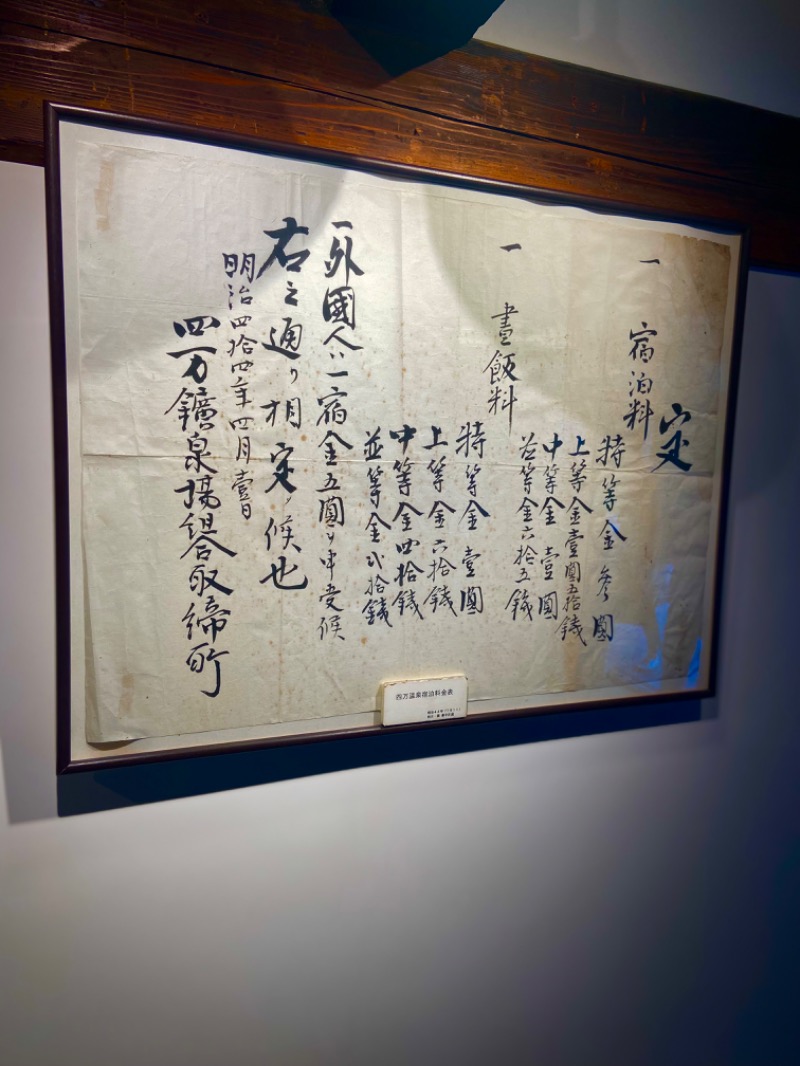 定
一 宿泊料
特等金參圓
上等金壹圓五拾錢
中等金壹圓
並等金六拾五錢
一 晝飯料
特等金壹圓
上等金六拾錢
中等金四拾錢
並等金弐拾錢
一外國人ハ一宿金五圓ヨリ申受候
右之通リ相定メ候也
明治四拾四年四月壹日
四万鑛泉場組合取締所
四万温泉宿泊料金表